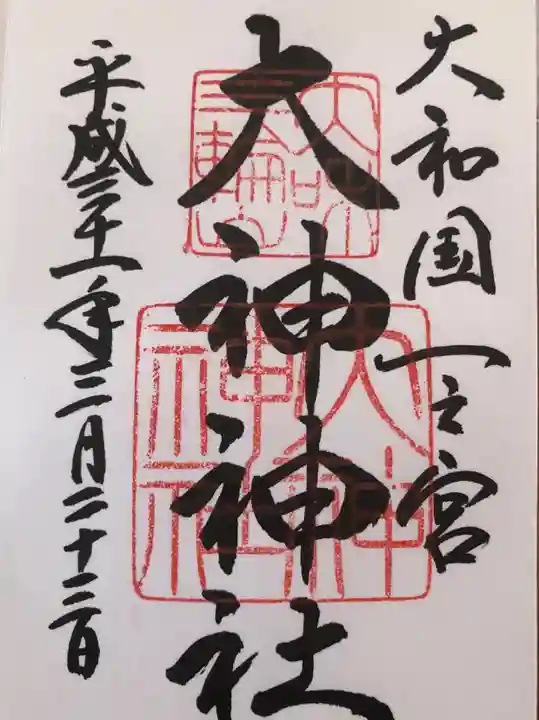 大和国一之宮
大神神社
平成三十一年三月二十三日
三輪
大神
神社